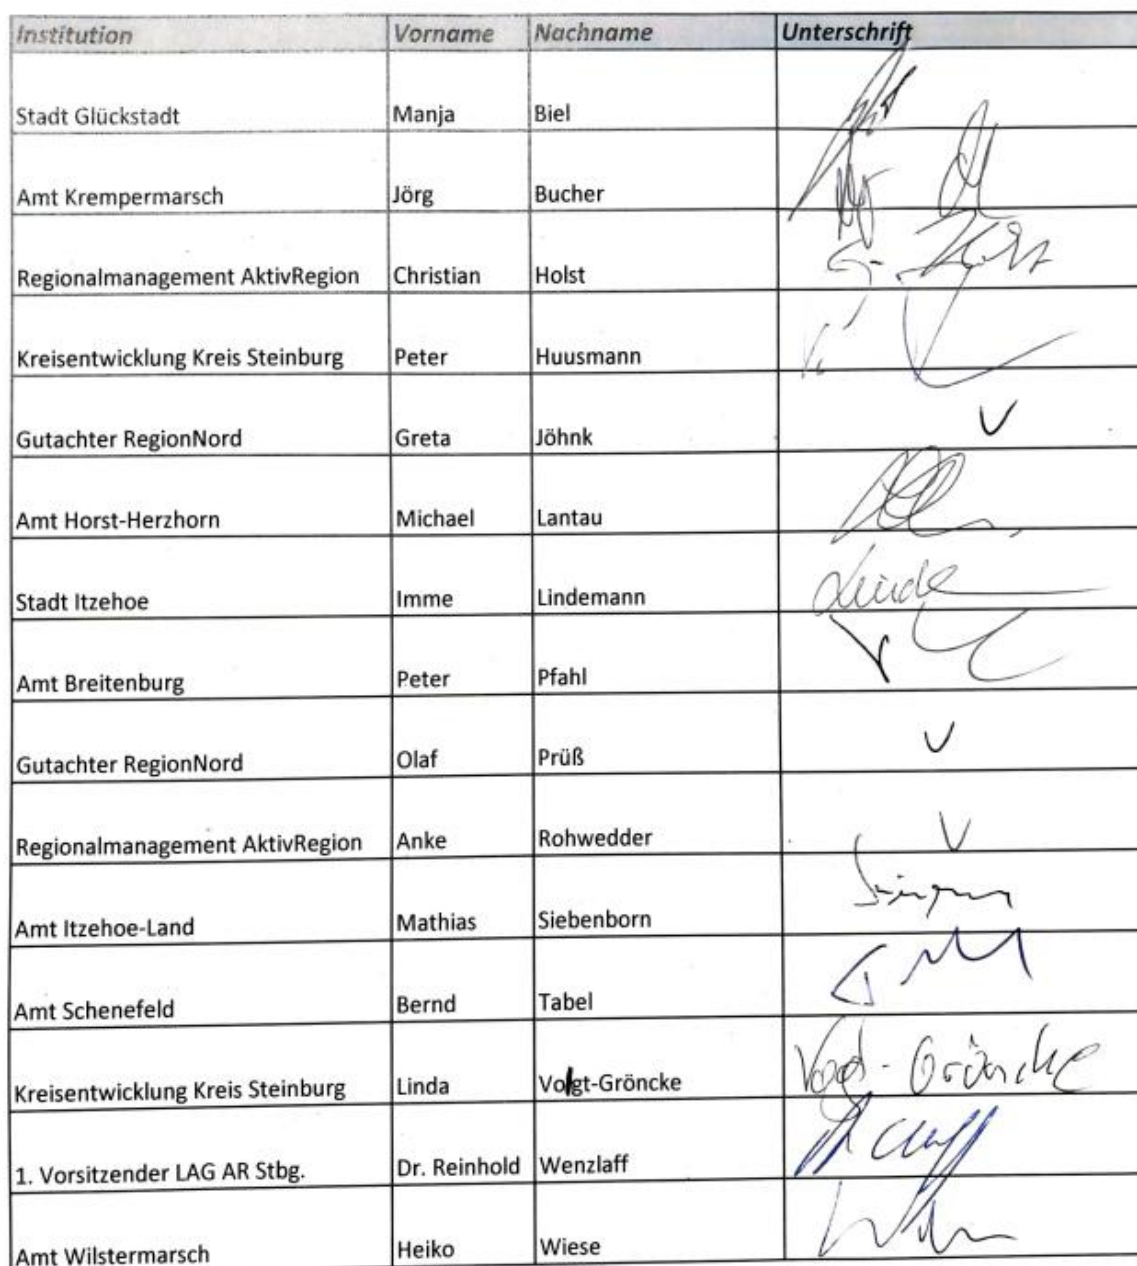 Institution Vorname Nachname Unterschrift
Stadt Glückstadt Manja Biel
Amt Krempermarsch Jörg Bucher
Regionalmanagement AktivRegion Christian Holst
Kreisentwicklung Kreis Steinburg Peter Huusmann
Gutachter RegionNord Greta Jöhnk
Amt Horst-Herzhorn Michael Lantau
Stadt Itzehoe Imme Lindemann
Amt Breitenburg Peter Pfahl
Gutachter RegionNord Olaf Prüß
Regionalmanagement AktivRegion Anke Rohwedder
Amt Itzehoe-Land Mathias Siebenborn
Amt Schenefeld Bernd Tabel
Kreisentwicklung Kreis Steinburg Linda Vogt-Gröncke
1. Vorsitzender LAG AR Stbg. Dr. Reinhold Wenzlaff
Amt Wilstermarsch Heiko Wiese